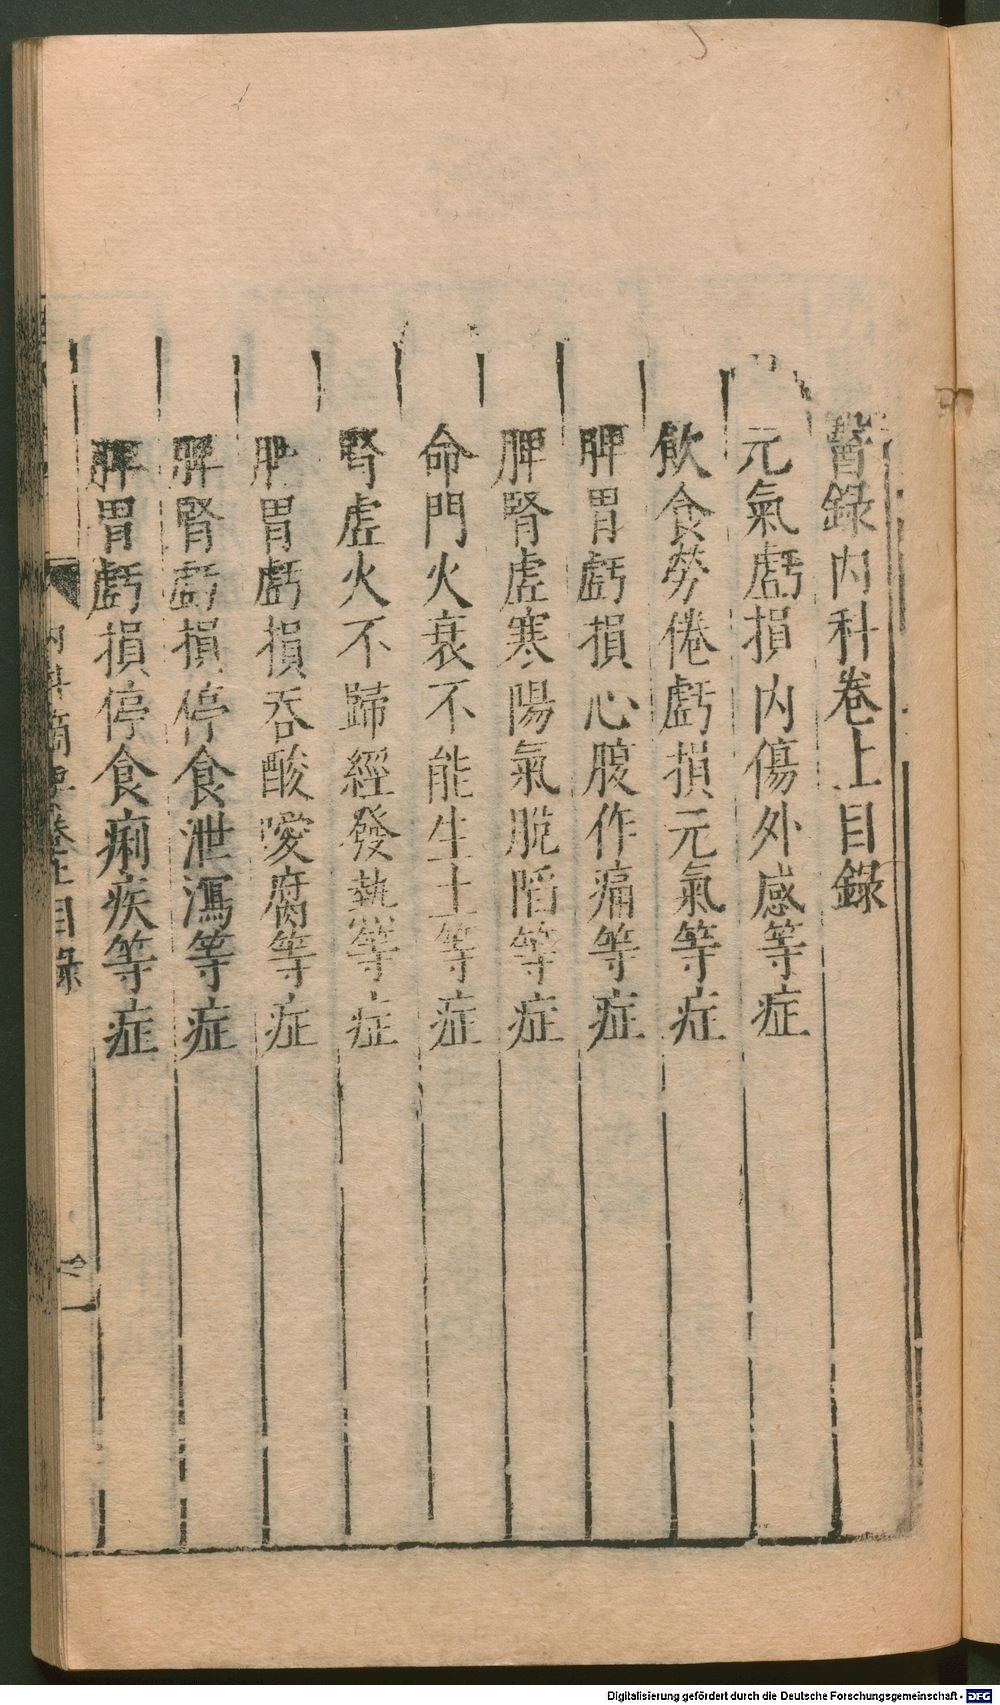 醫錄內科卷上目錄
元氣虧損內傷外感等症
飲食勞倦虧損元氣等症
脾胃虧損心腹作痛等症
脾腎虛寒陽氣脫陷等症
命門火衰不能生土等症
腎虛火不歸經發熱等症
脾胃虧損吞酸噯腐等症
脾腎虧損停食泄瀉等症
脾胃虧損停食痢疾等症
內科摘要卷上目錄
一
Digitalisierung gefördert durch die Deutsche Forschungsgemeinschaft - DFG